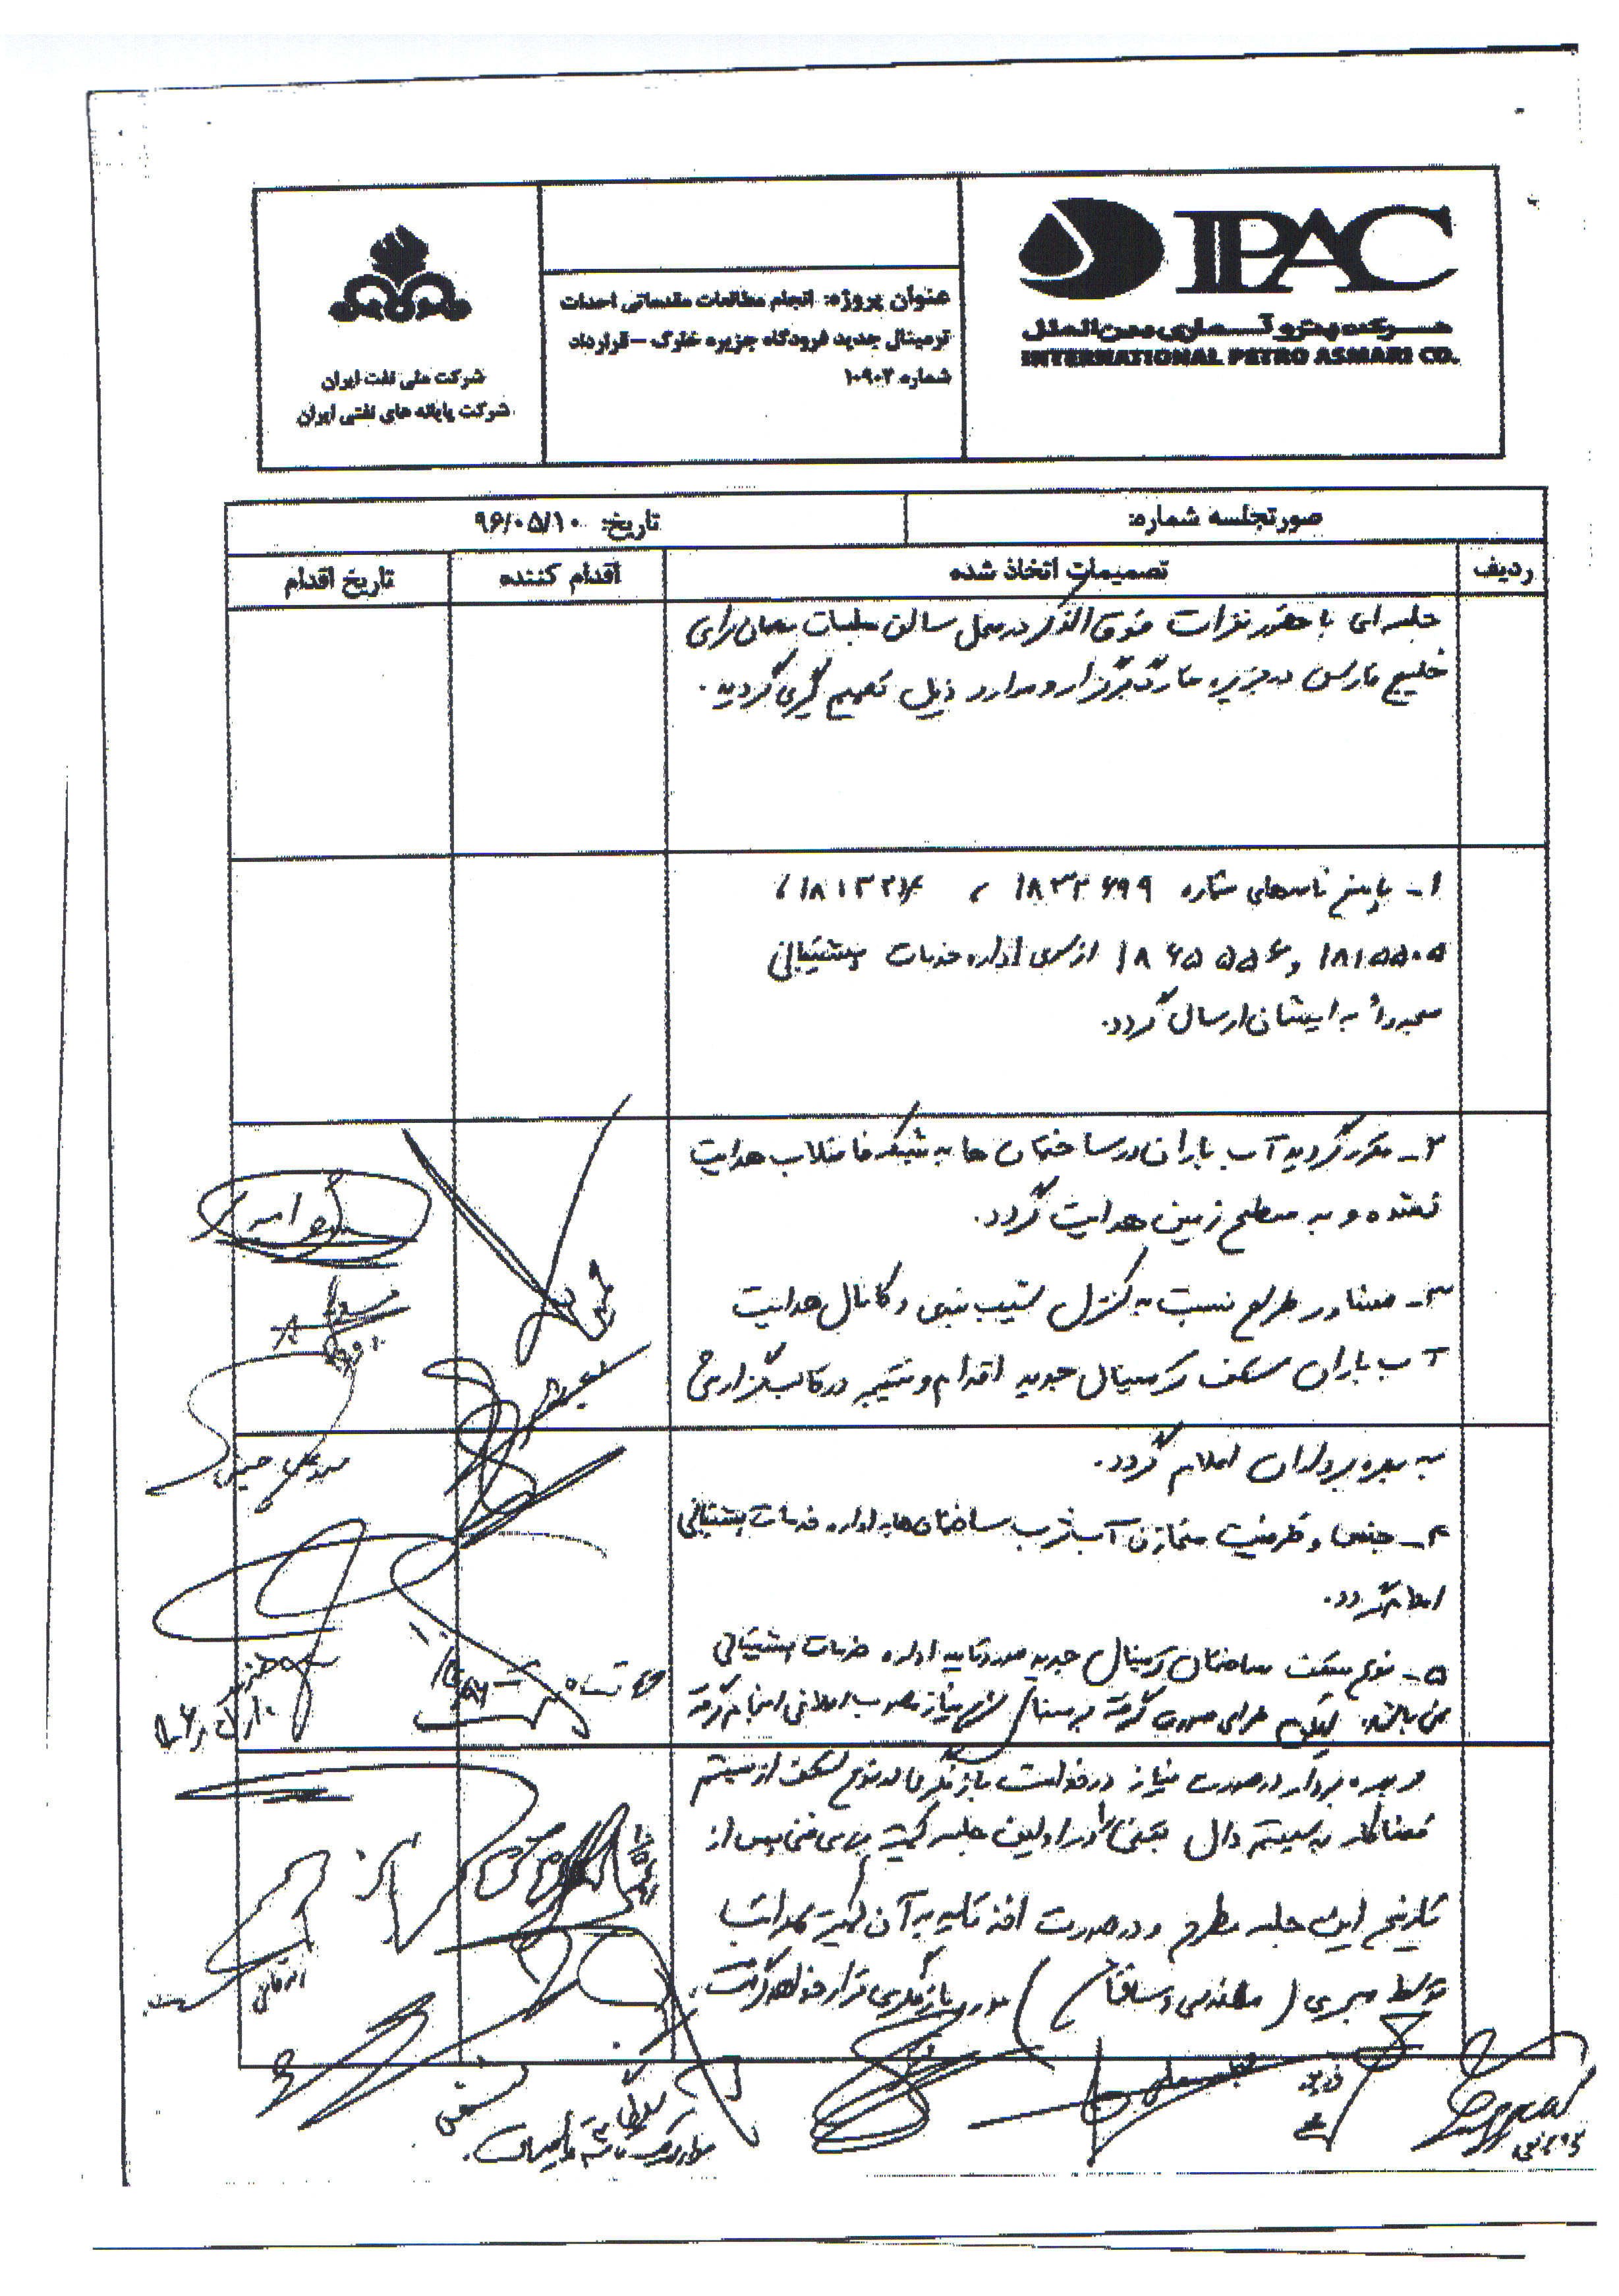 IPAC
شرکت پترو آسماری بین الملل
INTERNATIONAL PETRO ASMARI CO.
عنوان پروژه: انجام مطالعات مقدماتی احداث
ترمینال جدید فرودگاه جزیره خارک – قرارداد
شماره ۱۰۹۰۲
شرکت ملی نفت ایران
شرکت پایانه های نفتی ایران
صورتجلسه شماره: تاریخ: ۹۶/۰۵/۱۰
ردیف تصمیمات اتخاذ شده اقدام کننده تاریخ اقدام
جلسه ای با حضور نفرات فوق الذکر در محل سالن جلسات مهمان سرای
خلیج فارس در جزیره خارگ برگزار و موارد ذیل تصمیم گیری گردید.
۱- پاسخ نامه های شماره ۱۸۳۲۶۹۹ ،
۱۸۱۵۵۰۵ و ۱۸۶۵۵۵۶ از سوی اداره خدمات پشتیبانی
مجدداً به ایشان ارسال گردد.
۲- مقرر گردید آب باران در ساختمان ها به شبکه فاضلاب هدایت
نشده و به سطح زمین هدایت گردد.
۳- مشاور طرح نسبت به کنترل شیب بندی و کانال هدایت
آب باران سقف ترمینال جدید اقدام و نتیجه در قالب گزارش
به بهره برداران اعلام گردد.
۴- جنس و ظرفیت مخازن آب شرب ساختمان ها به اداره خدمات پشتیبانی
اعلام گردد.
۵- نوع سقف ساختمان ترمینال جدید مورد تایید اداره خدمات پشتیبانی
نمی باشد. لیکن طراحی صورت گرفته بر مبنای شرح نیاز مصوب اعلامی انجام گرفته
و بهره بردار در صورت نیاز درخواست بازنگری در نوع سقف از سیستم
فضاکار به سیستم دال بتنی را در اولین جلسه کمیته بررسی فنی پس از
تاریخ این جلسه مطرح و در صورت اخذ تاییدیه آن کمیته مراتب
توسط مجری (مهندسی و ساختمان) مورد بازنگری قرار خواهد گرفت.
سید علی حسینی